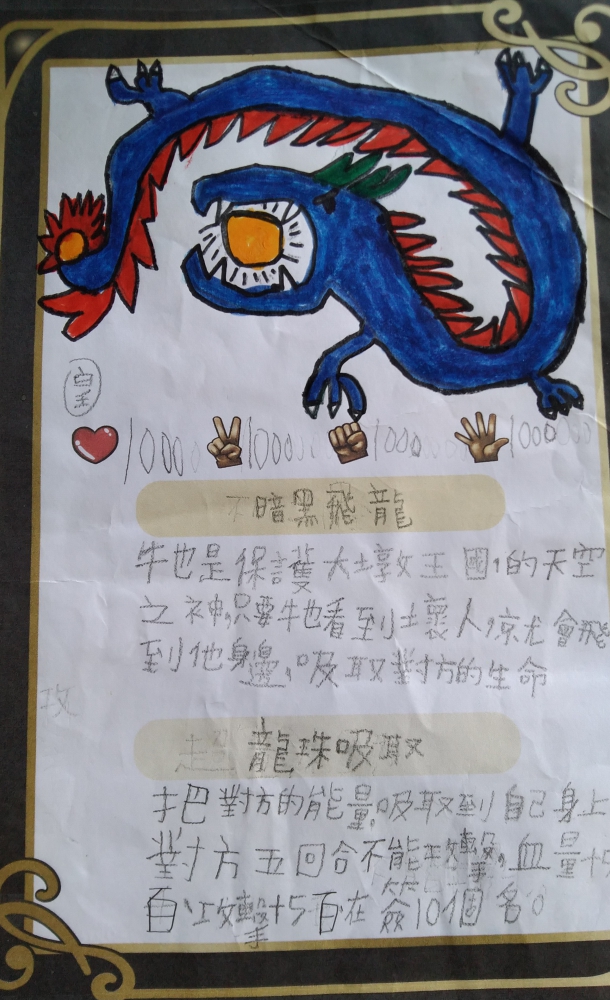 皇
1000 1000 1000 1000
暗黑飛龍
牠也是保護大墩王國,的天空
之神,只要牠看到壞人,就會飛
到他身邊,吸取對方的生命
攻
超龍珠吸取
把對方的能量,吸取到自己身上
對方五回合不能攻擊,血量+5
百、攻擊+5百在簽10個名。